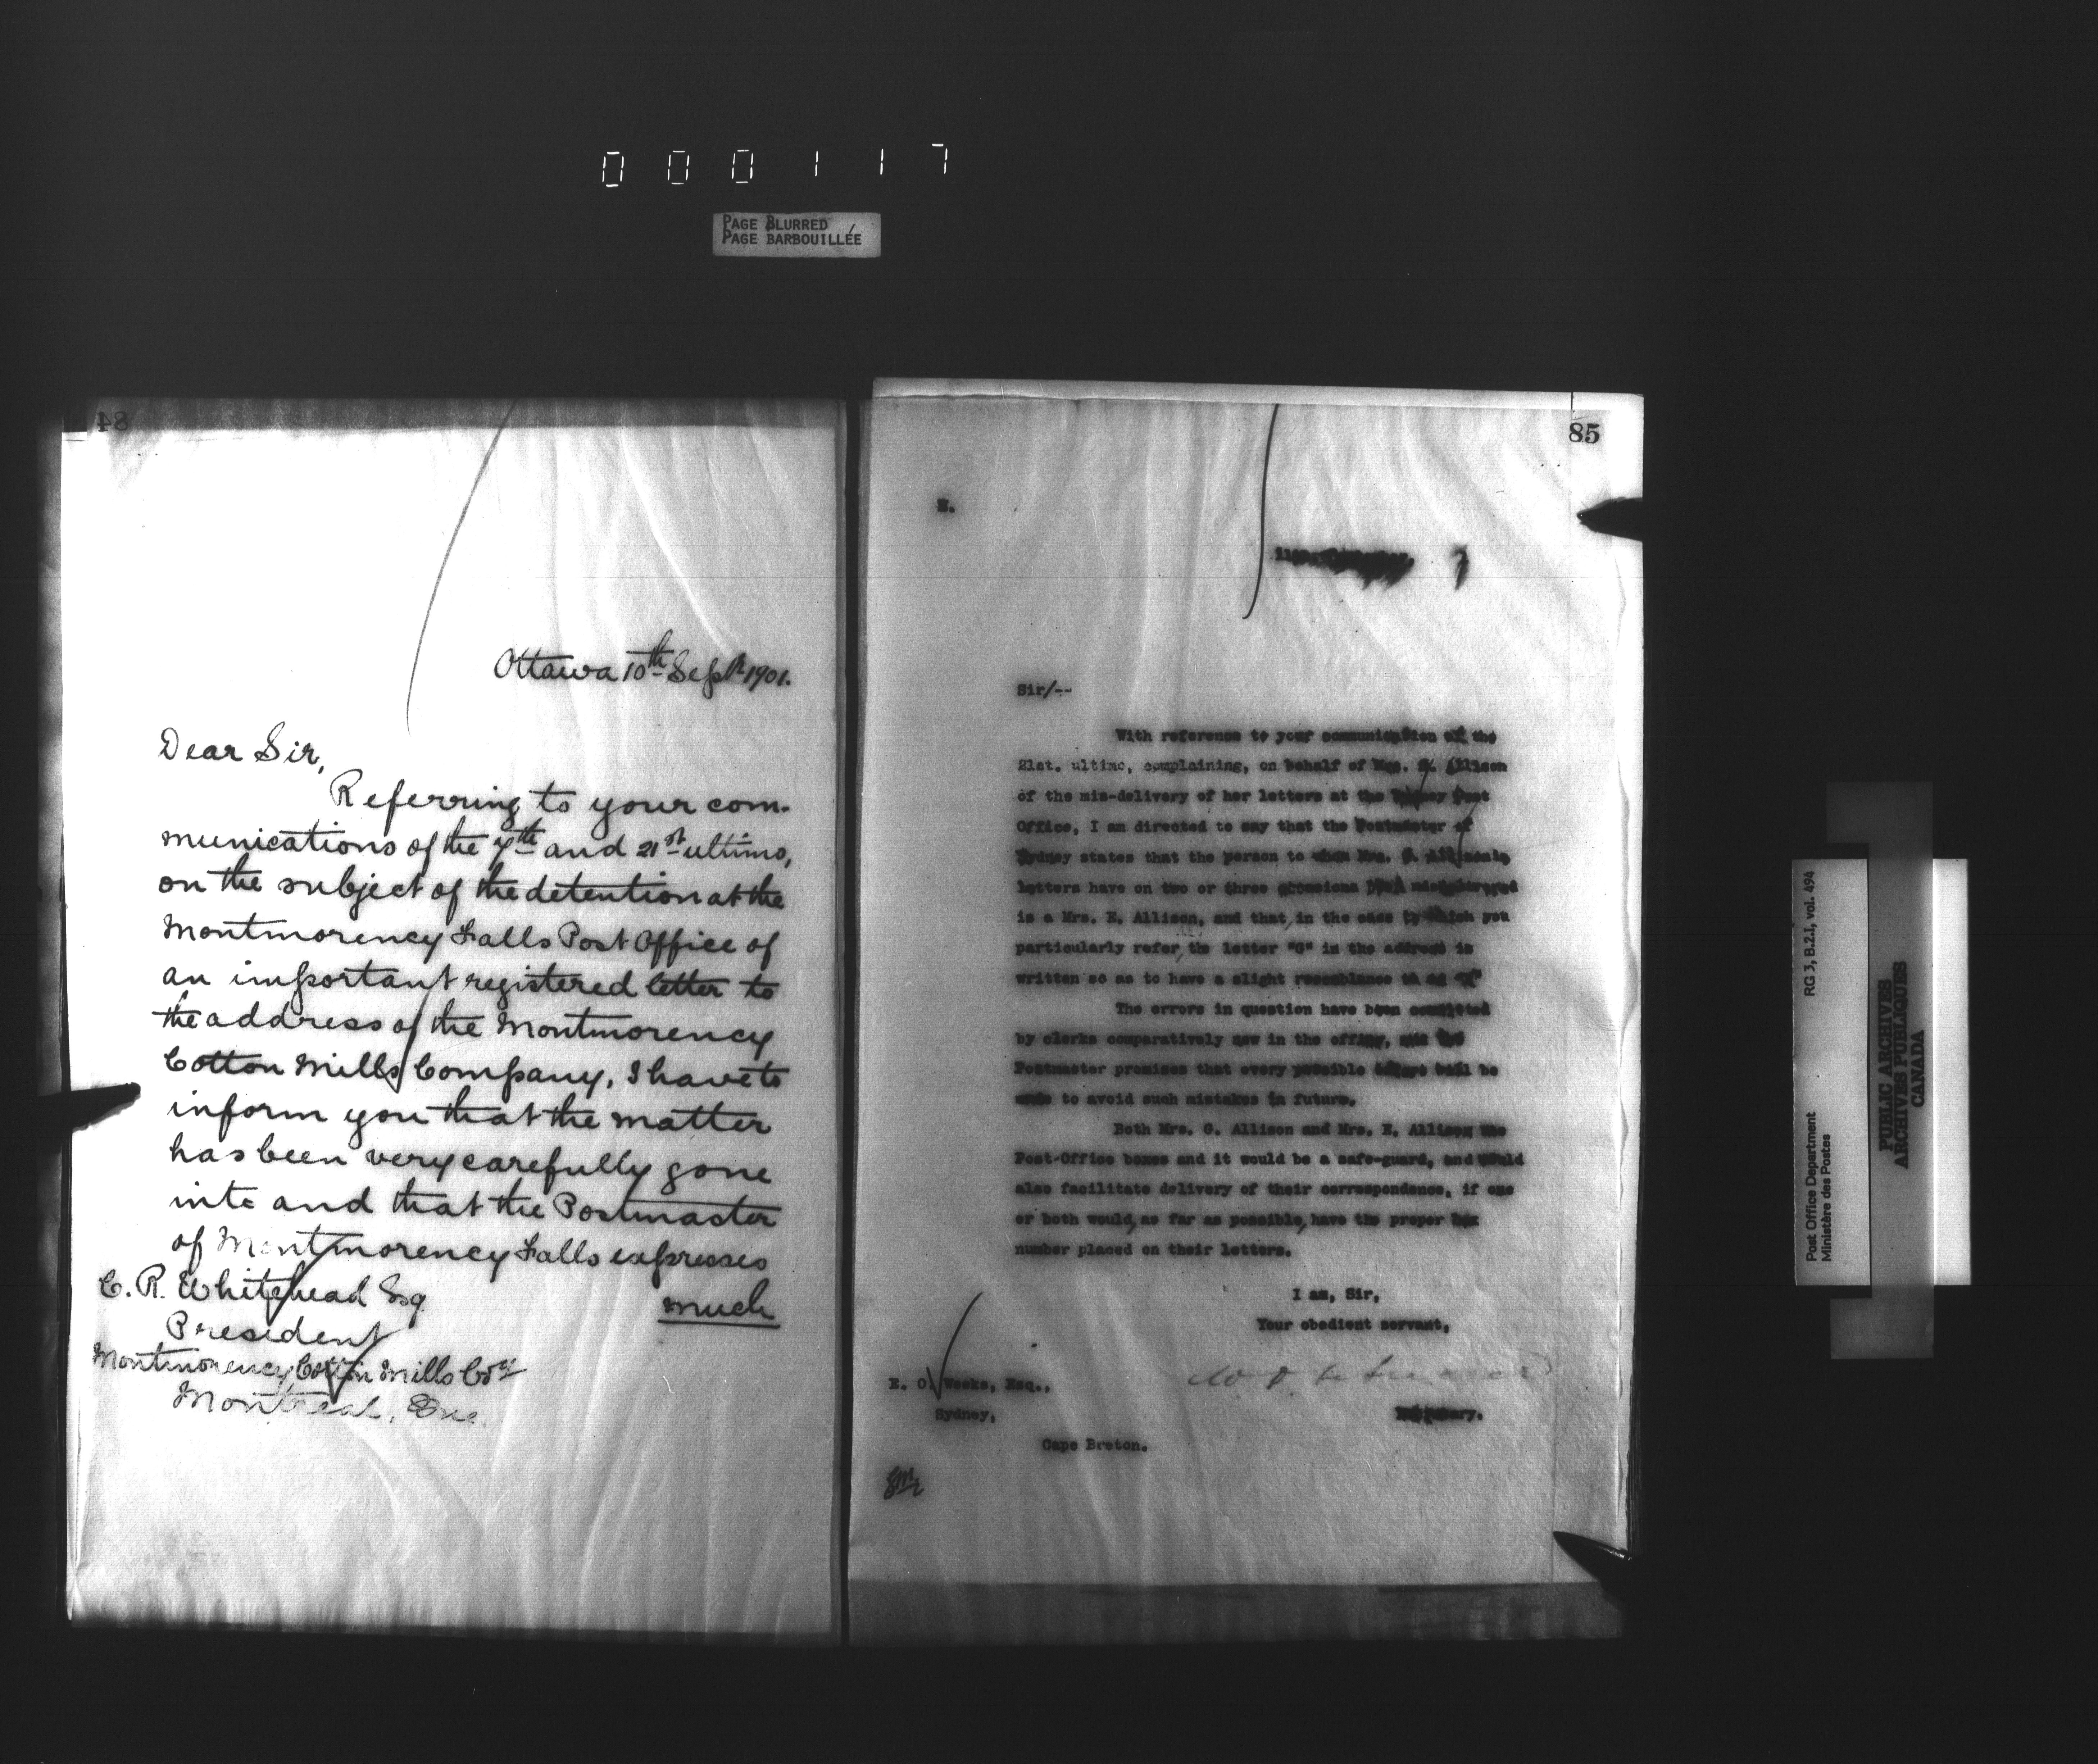 000117
PAGE BLURRED
PAGE BARBOUILLÉE
84
Ottawa 10th Sept. 1901.
Dear Sir,
Referring to your com-
munications of the 7th and 21st ultimo,
on the subject of the detention at the
Montmorency Falls Post Office of
an important registered letter to
the address of the Montmorency
Cotton Mills Company, I have to
inform you that the matter
has been very carefully gone
into and that the Postmaster
of Montmorency Falls expresses
much
C. R. Whitehead Esq
President
Montmorency Cotton Mills Coy
Montreal, Que.
85
Sir/--
With reference to your communication of the
21st. ultimo, complaining, on behalf of Mrs. G. Allison
of the mis-delivery of her letters at the Sydney Post
Office, I am directed to say that the Postmaster of
Sydney states that the person to whom Mrs. G. Allison's
letters have on two or three occasions been
is a Mrs. E. Allison, and that, in the case to which you
particularly refer, the letter "G" in the address is
written so as to have a slight resemblance to an "E"
The errors in question have been committed
by clerks comparatively new in the office, and the
Postmaster promises that every possible will be
made to avoid such mistakes in future.
Both Mrs. G. Allison and Mrs. E. Allison
Post-Office boxes and it would be a safe-guard, and would
also facilitate delivery of their correspondence, if one
or both would, as far as possible, have the proper box
number placed on their letters.
I am, Sir,
Your obedient servant,
Secretary.
E. O. Weeks, Esq.,
Sydney,
Cape Breton.
RG 3, B.2.I, vol. 494
Post Office Department
Ministère des Postes
PUBLIC ARCHIVES
ARCHIVES PUBLIQUES
CANADA